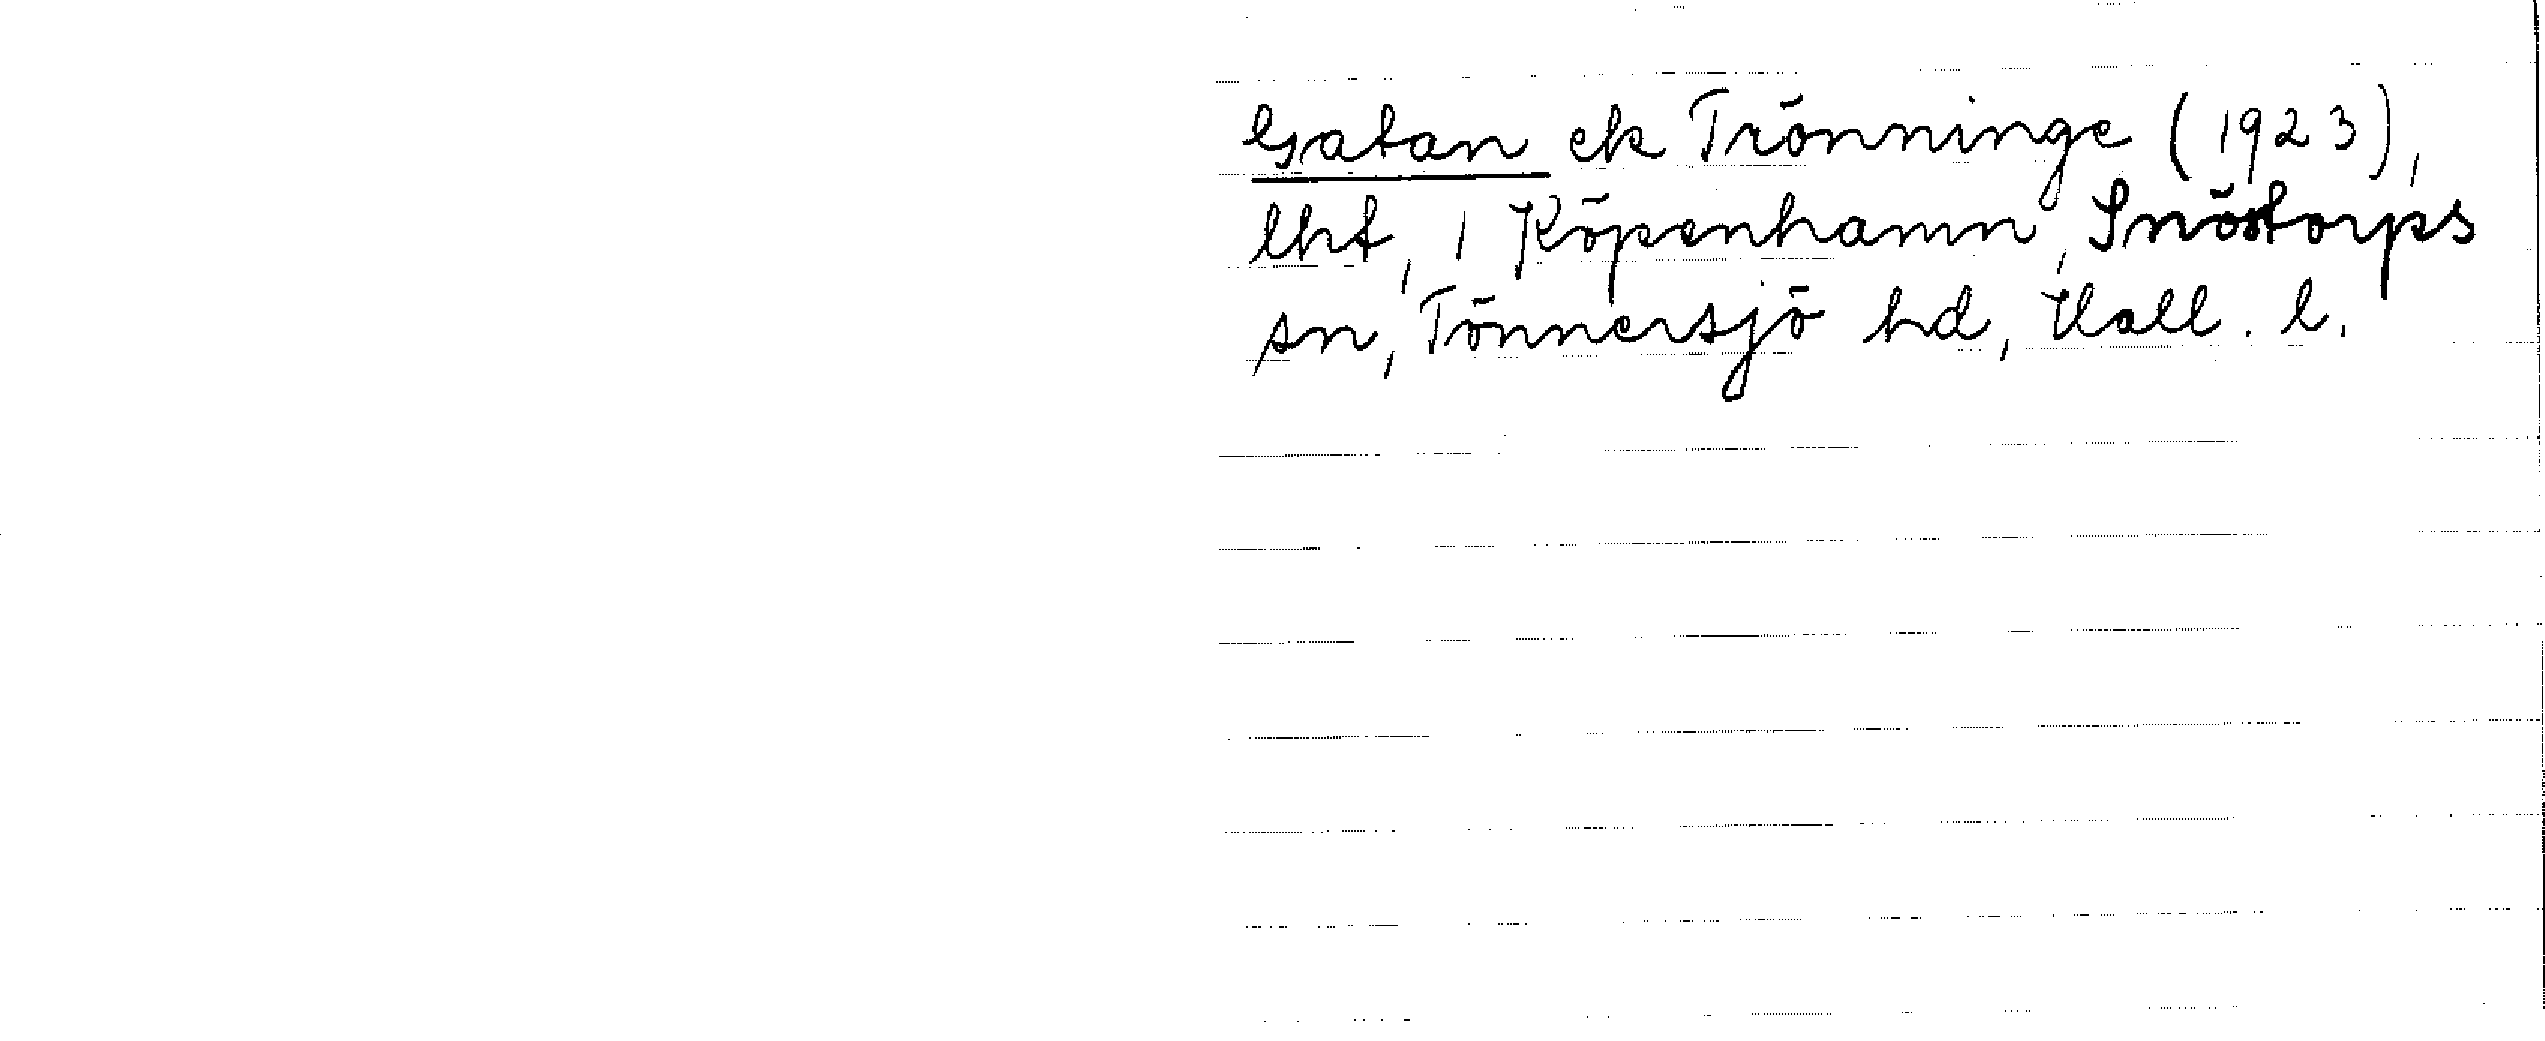 Gatan ek Trönninge (1923),
lht, i Köpenhamn, Snöstorps
sn, Tönnersjö hd, Hall. l.